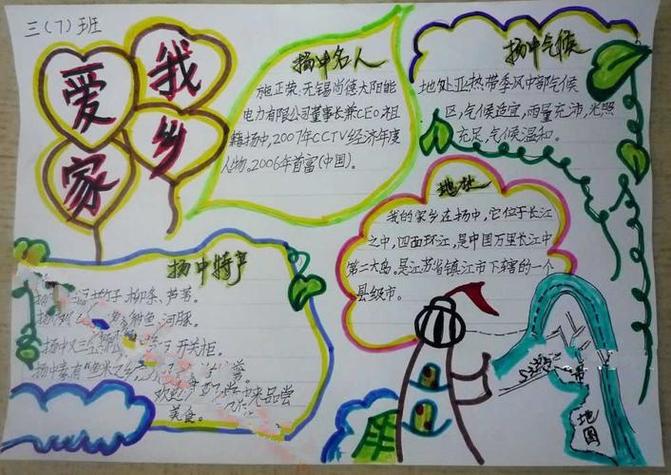 三(7)班
我爱家乡
扬中名人
施正荣,无锡尚德太阳能
电力有限公司董事长兼CEO祖
籍扬中,2007年CCTV经济年度
人物。2006年首富(中国)。
扬中气候
地处亚热带季风中部气候
区,气候适宜,雨量充沛,光照
充足,气候温和。
地址
我的家乡在扬中,它位于长江
之中,四面环江,是中国万里长江中
第二大岛。是江苏省镇江市下辖的一个
县级市。
扬中特产
竹子、柳条、芦苇。
鲥鱼、河豚。
扬中又三宝 开关柜。
扬中素有"鱼米之乡
欢迎 来品尝
美食。
地图